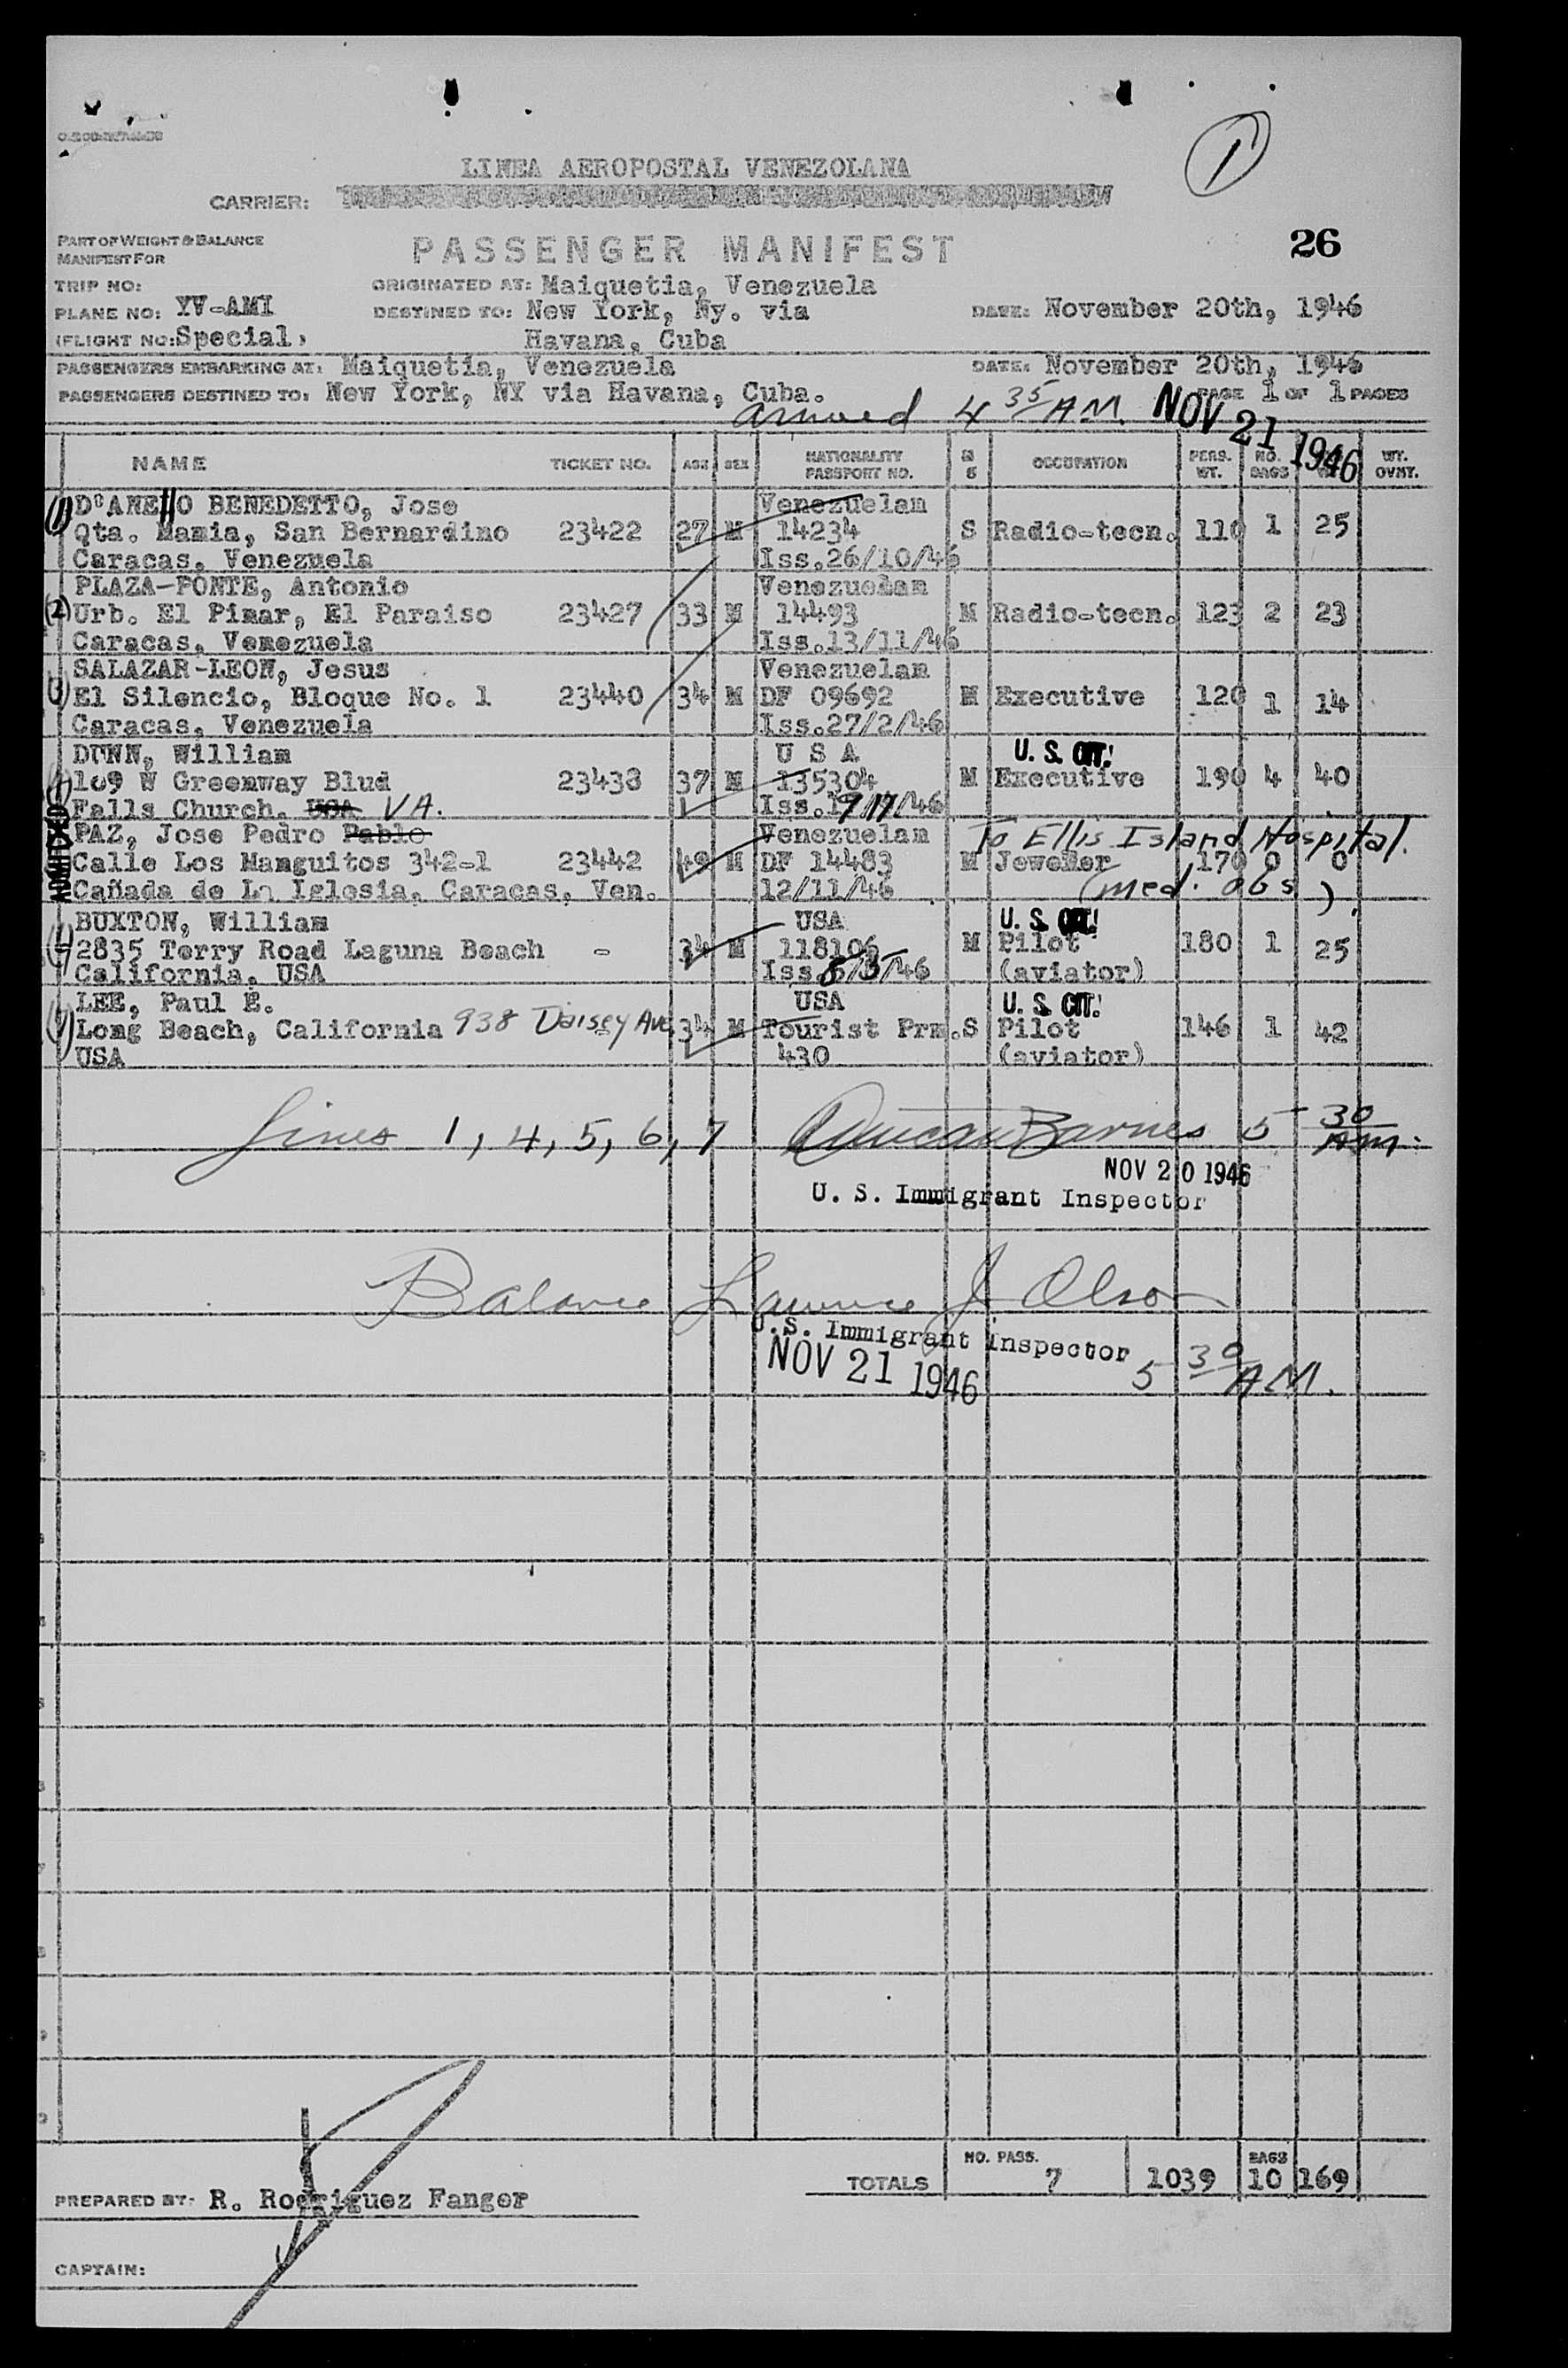 LINEA AEROPOSTAL VENEZOLANA
1
CARRIER:
PART OF WEIGHT & BALANCE
MANIFEST FOR
PASSENGER MANIFEST
26
TRIP NO:
ORIGINATED AT: Maiquetia, Venezuela
PLANE NO: YV-AMI
DESTINED TO: New York, Ny. via
DATE: November 20th, 1946
(FLIGHT NO: Special)
Havana, Cuba
PASSENGERS EMBARKING AT: Maiquetia, Venezuela
DATE: November 20th, 1946
PASSENGERS DESTINED TO: New York, NY via Havana, Cuba.
PAGE 1 OF 1 PAGES
arrived 4 35 AM. NOV 21 1946
NAME TICKET NO. AGE SEX NATIONALITY PASSPORT NO. M S OCCUPATION PERS. WT. NO. BAGS WT. OVWT.
(1) D'ANELLO BENEDETTO, Jose Venezuelan
Qta. Mamia, San Bernardino 23422 27 M 14234 S Radio-tecn. 110 1 25
Caracas, Venezuela Iss.26/10/46
PLAZA-PONTE, Antonio Venezuelan
(2) Urb. El Pinar, El Paraiso 23427 33 M 14493 M Radio-tecn. 123 2 23
Caracas, Venezuela Iss.13/11/46
SALAZAR-LEON, Jesus Venezuelan
(3) El Silencio, Bloque No. 1 23440 34 M DF 09692 M Executive 120 1 14
Caracas, Venezuela Iss.27/2/46
DUNN, William U S A U. S. CIT.
109 W Greenway Blud 23438 37 M 135304 M Executive 190 4 40
Falls Church, USA VA. Iss. 9/17/46
ADMITTED
PAZ, Jose Pedro Pablo Venezuelan To Ellis Island Hospital.
Calle Los Manguitos 342-1 23442 49 M DF 14483 M Jeweler 170 0 0
Cañada de La Iglesia, Caracas, Ven. 12/11/46 (med. obs).
BUXTON, William USA U. S. CIT.
2835 Terry Road Laguna Beach - 34 M 118106 M Pilot 180 1 25
California, USA Iss. 8/5/46 (aviator)
LEE, Paul E. USA U. S. CIT.
Long Beach, California 938 Daisey Ave. 34 M Tourist Prm. S Pilot 146 1 42
USA 430 (aviator)
Lines 1, 4, 5, 6, 7 Duncan Barnes 5 30 AM.
NOV 20 1946
U. S. Immigrant Inspector
Balance Lawrence J Olson
U.S. Immigrant Inspector
NOV 21 1946 5 30 AM.
NO. PASS. BAGS
TOTALS 7 1039 10 169
PREPARED BY: R. Rodriguez Fanger
CAPTAIN: